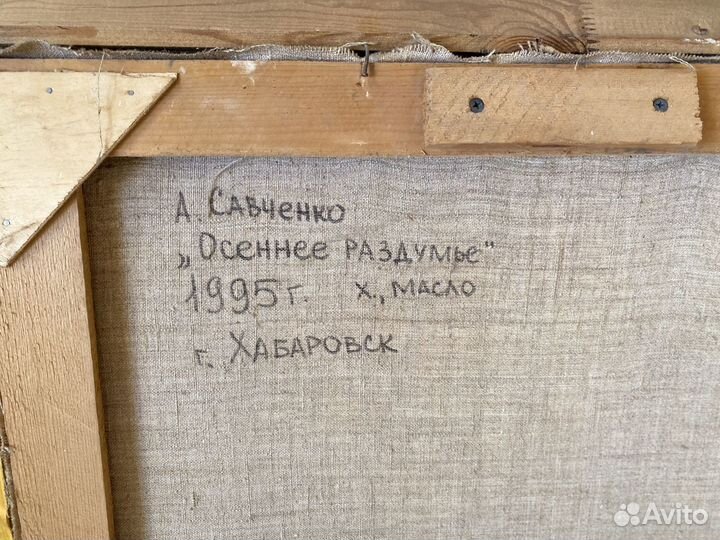 А. Савченко
„Осеннее раздумье"
1995 г. х., масло
г. Хабаровск
Avito